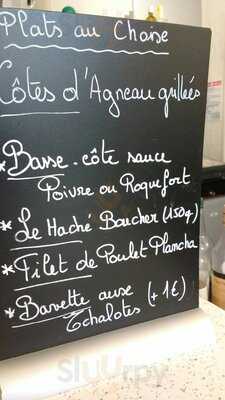 Plats au Choise
Côtes d'Agneau grillées
*Basse-côte sauce
Poivre ou Roquefort
*Le Haché Boucher (150g)
*Filet de Poulet Plancha
*Bavette aux
Echalotes (+1€)
Sluurpy